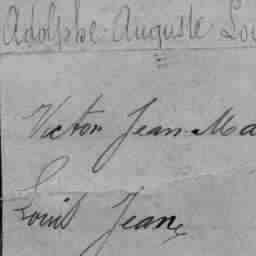 Adolphe-Auguste Lou
Victor Jean-Ma
Louis Jean